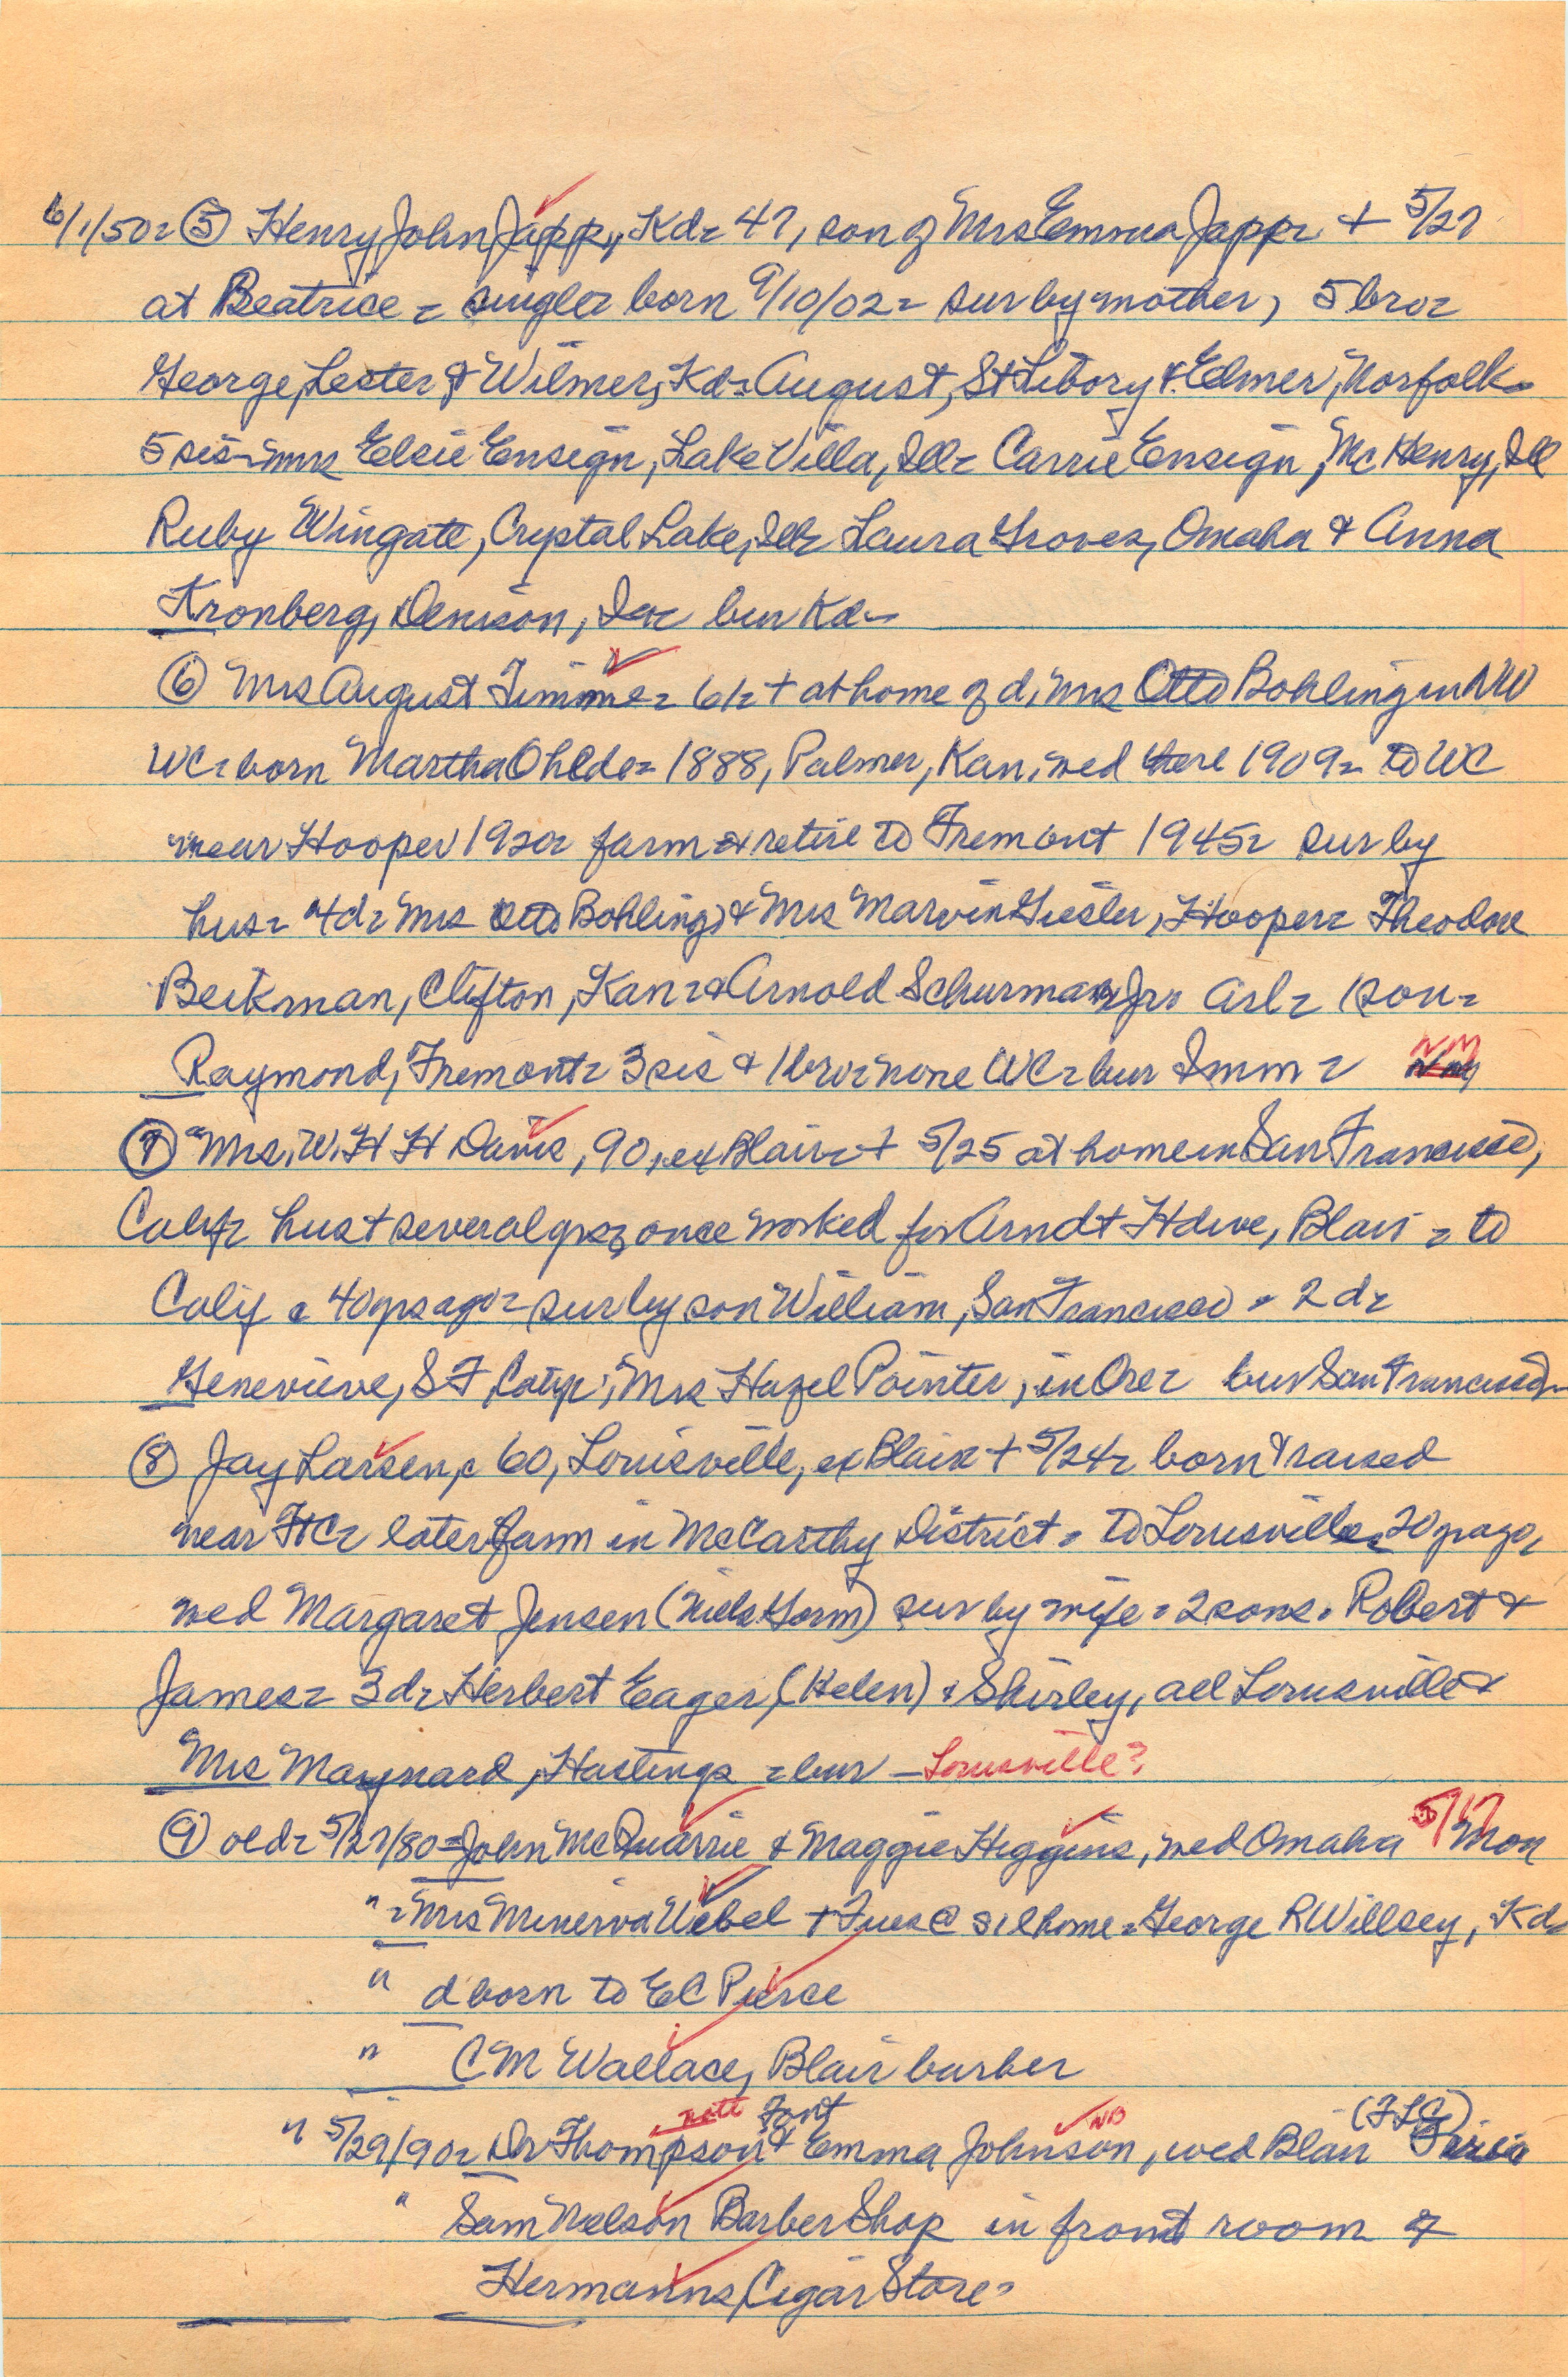 6/1/50= ⑤ Henry John Japp, Kd= 47, son of Mrs Emma Japp= + 5/27
at Beatrice = single= born 9/10/02= sur by mother, 5 bro=
George, Lester & Wilmer, Kd= August, St Libory & Elmer, Norfolk=
5 sis= Mrs Elsie Ensign, Lake Villa, Ill= Carrie Ensign, McHenry, Ill
Ruby Wingate, Crystal Lake, Ill= Laura Groves, Omaha & Anna
Kronberg, Denison, Ia= bur Kd=
⑥ Mrs August Timm= 61= + at home of d, Mrs Otto Bohling in NW
WC= born Martha Ohlde= 1888, Palmer, Kan, wed there 1909= to WC
near Hooper 1920= farm & retire to Fremont 1945= sur by
hus= 4d= Mrs Otto Bohling & Mrs Marvin Giesler, Hooper= Theodore
Beikman, Clifton, Kan= & Arnold Schurman Jr= Arl= 1 son=
Raymond, Fremont= 3 sis & 1 bro= none WC= bur Imm= NM
⑦ Mrs. W. H H Davis, 90, ex Blair= + 5/25 at home in San Francisco,
Calif= hus + several yrs, once worked for Arndt Hdwe, Blair = to
Calif c 40 yrs ago= sur by son William, San Francisco = 2 d=
Genevieve, S F, Calif; Mrs Hazel Pointer, in Ore= bur San Francisco=
⑧ Jay Larsen, c 60, Louisville, ex Blair + 5/24= born & raised
near FtC= later farm in McCarthy District = to Louisville c 20 yr ago,
wed Margaret Jensen (Niels Gorm) sur by wife = 2 sons = Robert &
James= 3 d= Herbert Eager (Helen) & Shirley, all Louisville &
Mrs Maynard, Hastings = bur — Louisville?
⑨ old= 5/27/80= John McQuarrie & Maggie Higgins, wed Omaha 5/17 Mon
" = Mrs Minerva Uebel + Tues @ sil home = George R Willsey, Kd=
" d born to E C Pierce
" C M Wallace, Blair barber
Font
" 5/29/90= Dr Thompson & Emma Johnson, wed Blair
NB
" Sam Nelson Barber Shop in front room of
Hermanns Cigar Store=